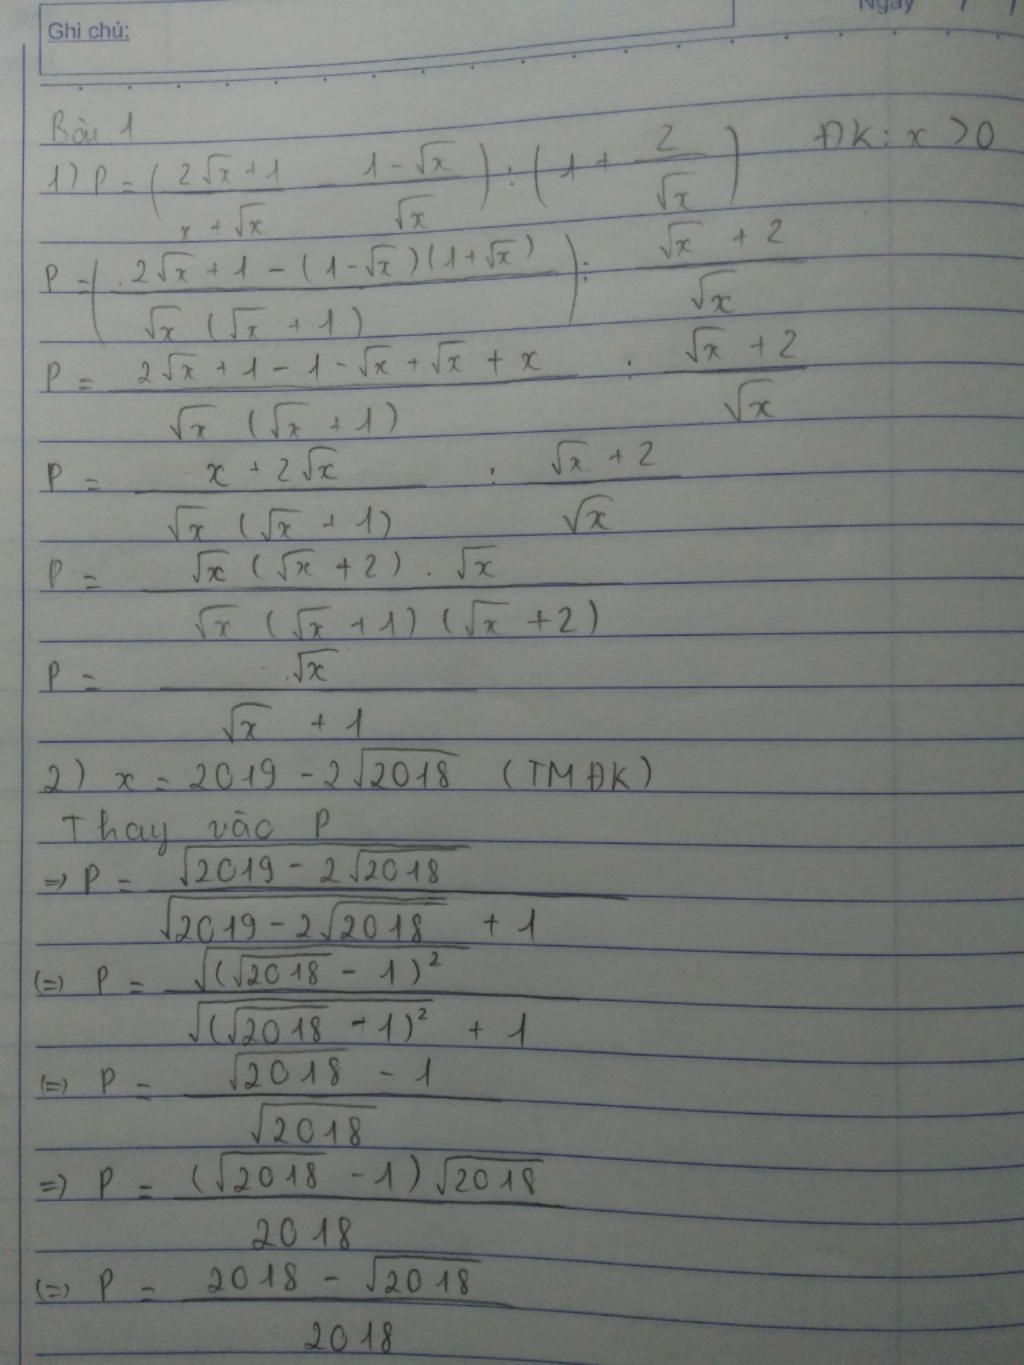 Ghi chú:
Ngày / /
Bài 1
1) P = (2√x + 1 / x + √x - 1 - √x / √x) : (1 + 2 / √x) ĐK: x > 0
P = (2√x + 1 - (1 - √x)(1 + √x) / √x (√x + 1)) : √x + 2 / √x
P = 2√x + 1 - 1 - √x + √x + x / √x (√x + 1) : √x + 2 / √x
P = x + 2√x / √x (√x + 1) : √x + 2 / √x
P = √x (√x + 2) . √x / √x (√x + 1) (√x + 2)
P = √x / √x + 1
2) x = 2019 - 2√2018 (TMĐK)
Thay vào P
⇒ P = √(2019 - 2√2018) / √(2019 - 2√2018) + 1
(=) P = √((√2018 - 1)²) / √((√2018 - 1)²) + 1
(=) P = √2018 - 1 / √2018
=) P = (√2018 - 1)√2018 / 2018
(=) P = 2018 - √2018 / 2018